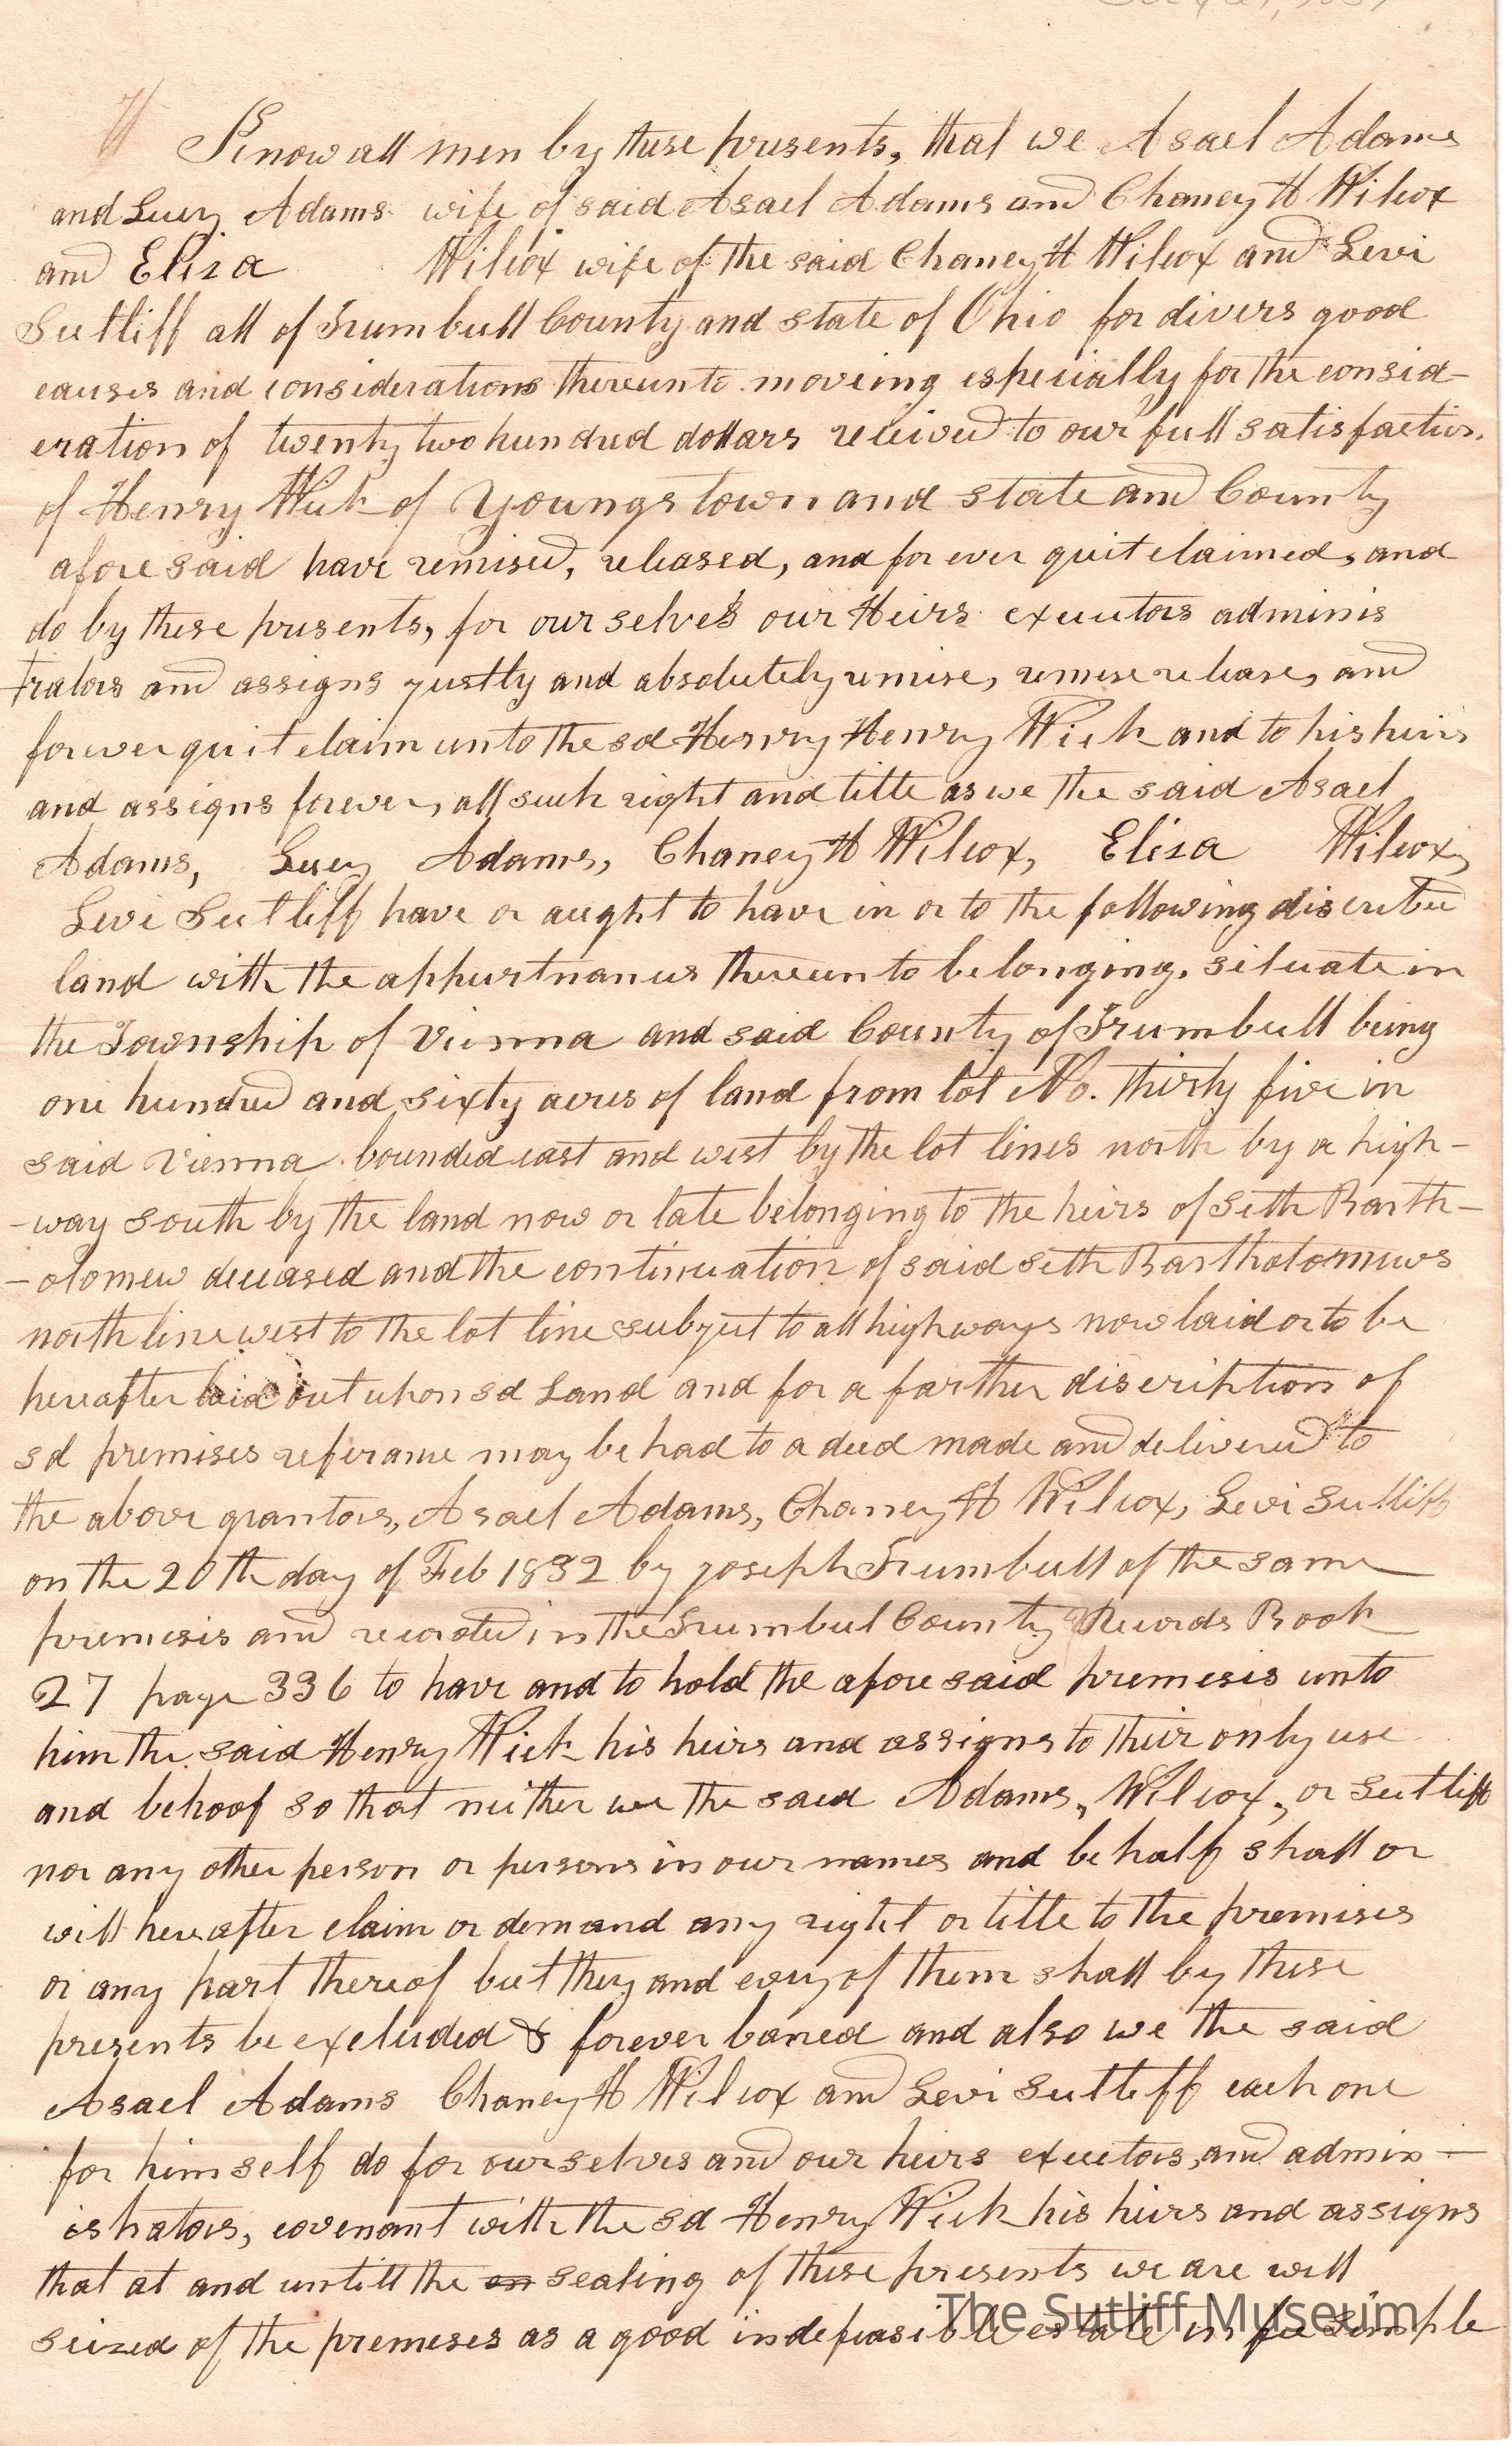 Know all men by these presents, that we Asael Adams
and Lucy Adams wife of said Asael Adams and Chaney H Wilcox
and Eliza Wilcox wife of the said Chaney H Wilcox and Levi
Sutliff all of Trumbull County and state of Ohio for divers good
causes and considerations thereunto moveing especially for the consid-
eration of twenty two hundred dollars received to our full satisfaction
of Henry Wick of Youngstown and state and County
aforesaid have remised, released, and forever quit claimed, and
do by these presents, for ourselves our Heirs executors adminis
trators and assigns justly and absolutely remise, remise release, and
forever quit claim unto the sd Henry Henry Wick and to his heirs
and assigns forever, all such right and title as we the said Asael
Adams, Lucy Adams, Chaney H Wilcox, Eliza Wilcox,
Levi Sutliff have or aught to have in or to the following discribed
land with the appurtnances thereunto belonging, situate in
the Township of Vienna and said County of Trumbull being
one hundred and sixty acres of land from lot No. thirty five in
said Vienna bounded east and west by the lot lines north by a high-
-way south by the land now or late belonging to the heirs of Seth Barth-
-olomew deceased and the continuation of said Seth Bartholomews
north line west to the lot line subject to all highways now laid or to be
hereafter laid out upon sd Land and for a farther discription of
sd premises referance may be had to a deed made and delivered to
the above grantors, Asael Adams, Chaney H Wilcox, Levi Sutliff
on the 20th day of Feb 1832 by Joseph Trumbull of the same
premesis and recorded in the Trumbul County Records Book
27 page 336 to have and to hold the aforesaid premesis unto
him the said Henry Wick his heirs and assigns to their only use
and behoof so that neither we the said Adams, Wilcox, or Sutliff
nor any other person or persons in our names and behalf shall or
will hereafter claim or demand any right or title to the premises
or any part thereof but they and every of them shall by these
presents be excluded & forever bared and also we the said
Asael Adams Chaney H Wilcox and Levi Sutliff each one
for himself do for ourselves and our heirs executors, and admin-
istrators, covenant with the sd Henry Wick his heirs and assigns
that at and untill the en sealing of these presents we are well
seized of the premeses as a good indefeasible estate in fee simple
The Sutliff Museum